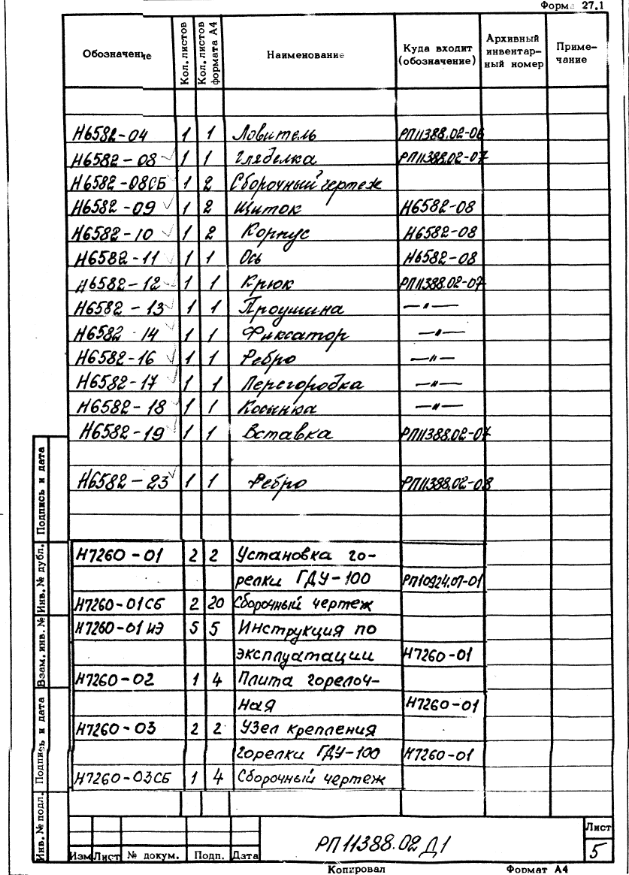 Форм. 27.1
Обозначение Кол. листов Кол. листов формата А4 Наименование Куда входит (обозначение) Архивный инвентар-ный номер Приме-чание
Н6582-04 1 1 Ловитель РП11388.02-06
Н6582-08 1 1 Гляделка РП11388.02-07
Н6582-08СБ 1 2 Сборочный чертеж
Н6582-09 1 2 Щиток Н6582-08
Н6582-10 1 2 Корпус Н6582-08
Н6582-11 1 1 Ось Н6582-08
Н6582-12 1 1 Крюк РП11388.02-07
Н6582-13 1 1 Проушина —"—
Н6582 14 1 1 Фиксатор —"—
Н6582-16 1 1 Ребро —"—
Н6582-17 1 1 Перегородка —"—
Н6582-18 1 1 Косынка —"—
Н6582-19 1 1 Вставка РП11388.02-07
Н6582-23 1 1 Ребро РП11388.02-08
Н7260-01 2 2 Установка го-
релки ГДУ-100 РП10924.07-01
Н7260-01СБ 2 20 Сборочный чертеж
Н7260-01ИЭ 5 5 Инструкция по
эксплуатации Н7260-01
Н7260-02 1 4 Плита горелоч-
ная Н7260-01
Н7260-03 2 2 Узел крепления
горелки ГДУ-100 Н7260-01
Н7260-03СБ 1 4 Сборочный чертеж
Подпись и дата
Инв. № дубл.
Взам. инв. №
Подпись и дата
Инв. № подл.
Изм Лист № докум. Подп. Дата
РП11388.02 Д1
Лист
5
Копировал Формат А4